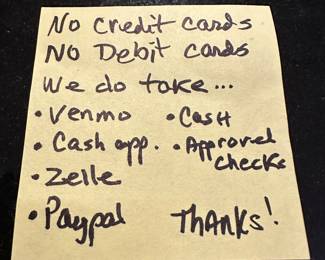 No Credit cards
NO Debit cards
We do take...
• Venmo • Cash
• Cash app. • Approved checks
• Zelle
• Paypal Thanks!